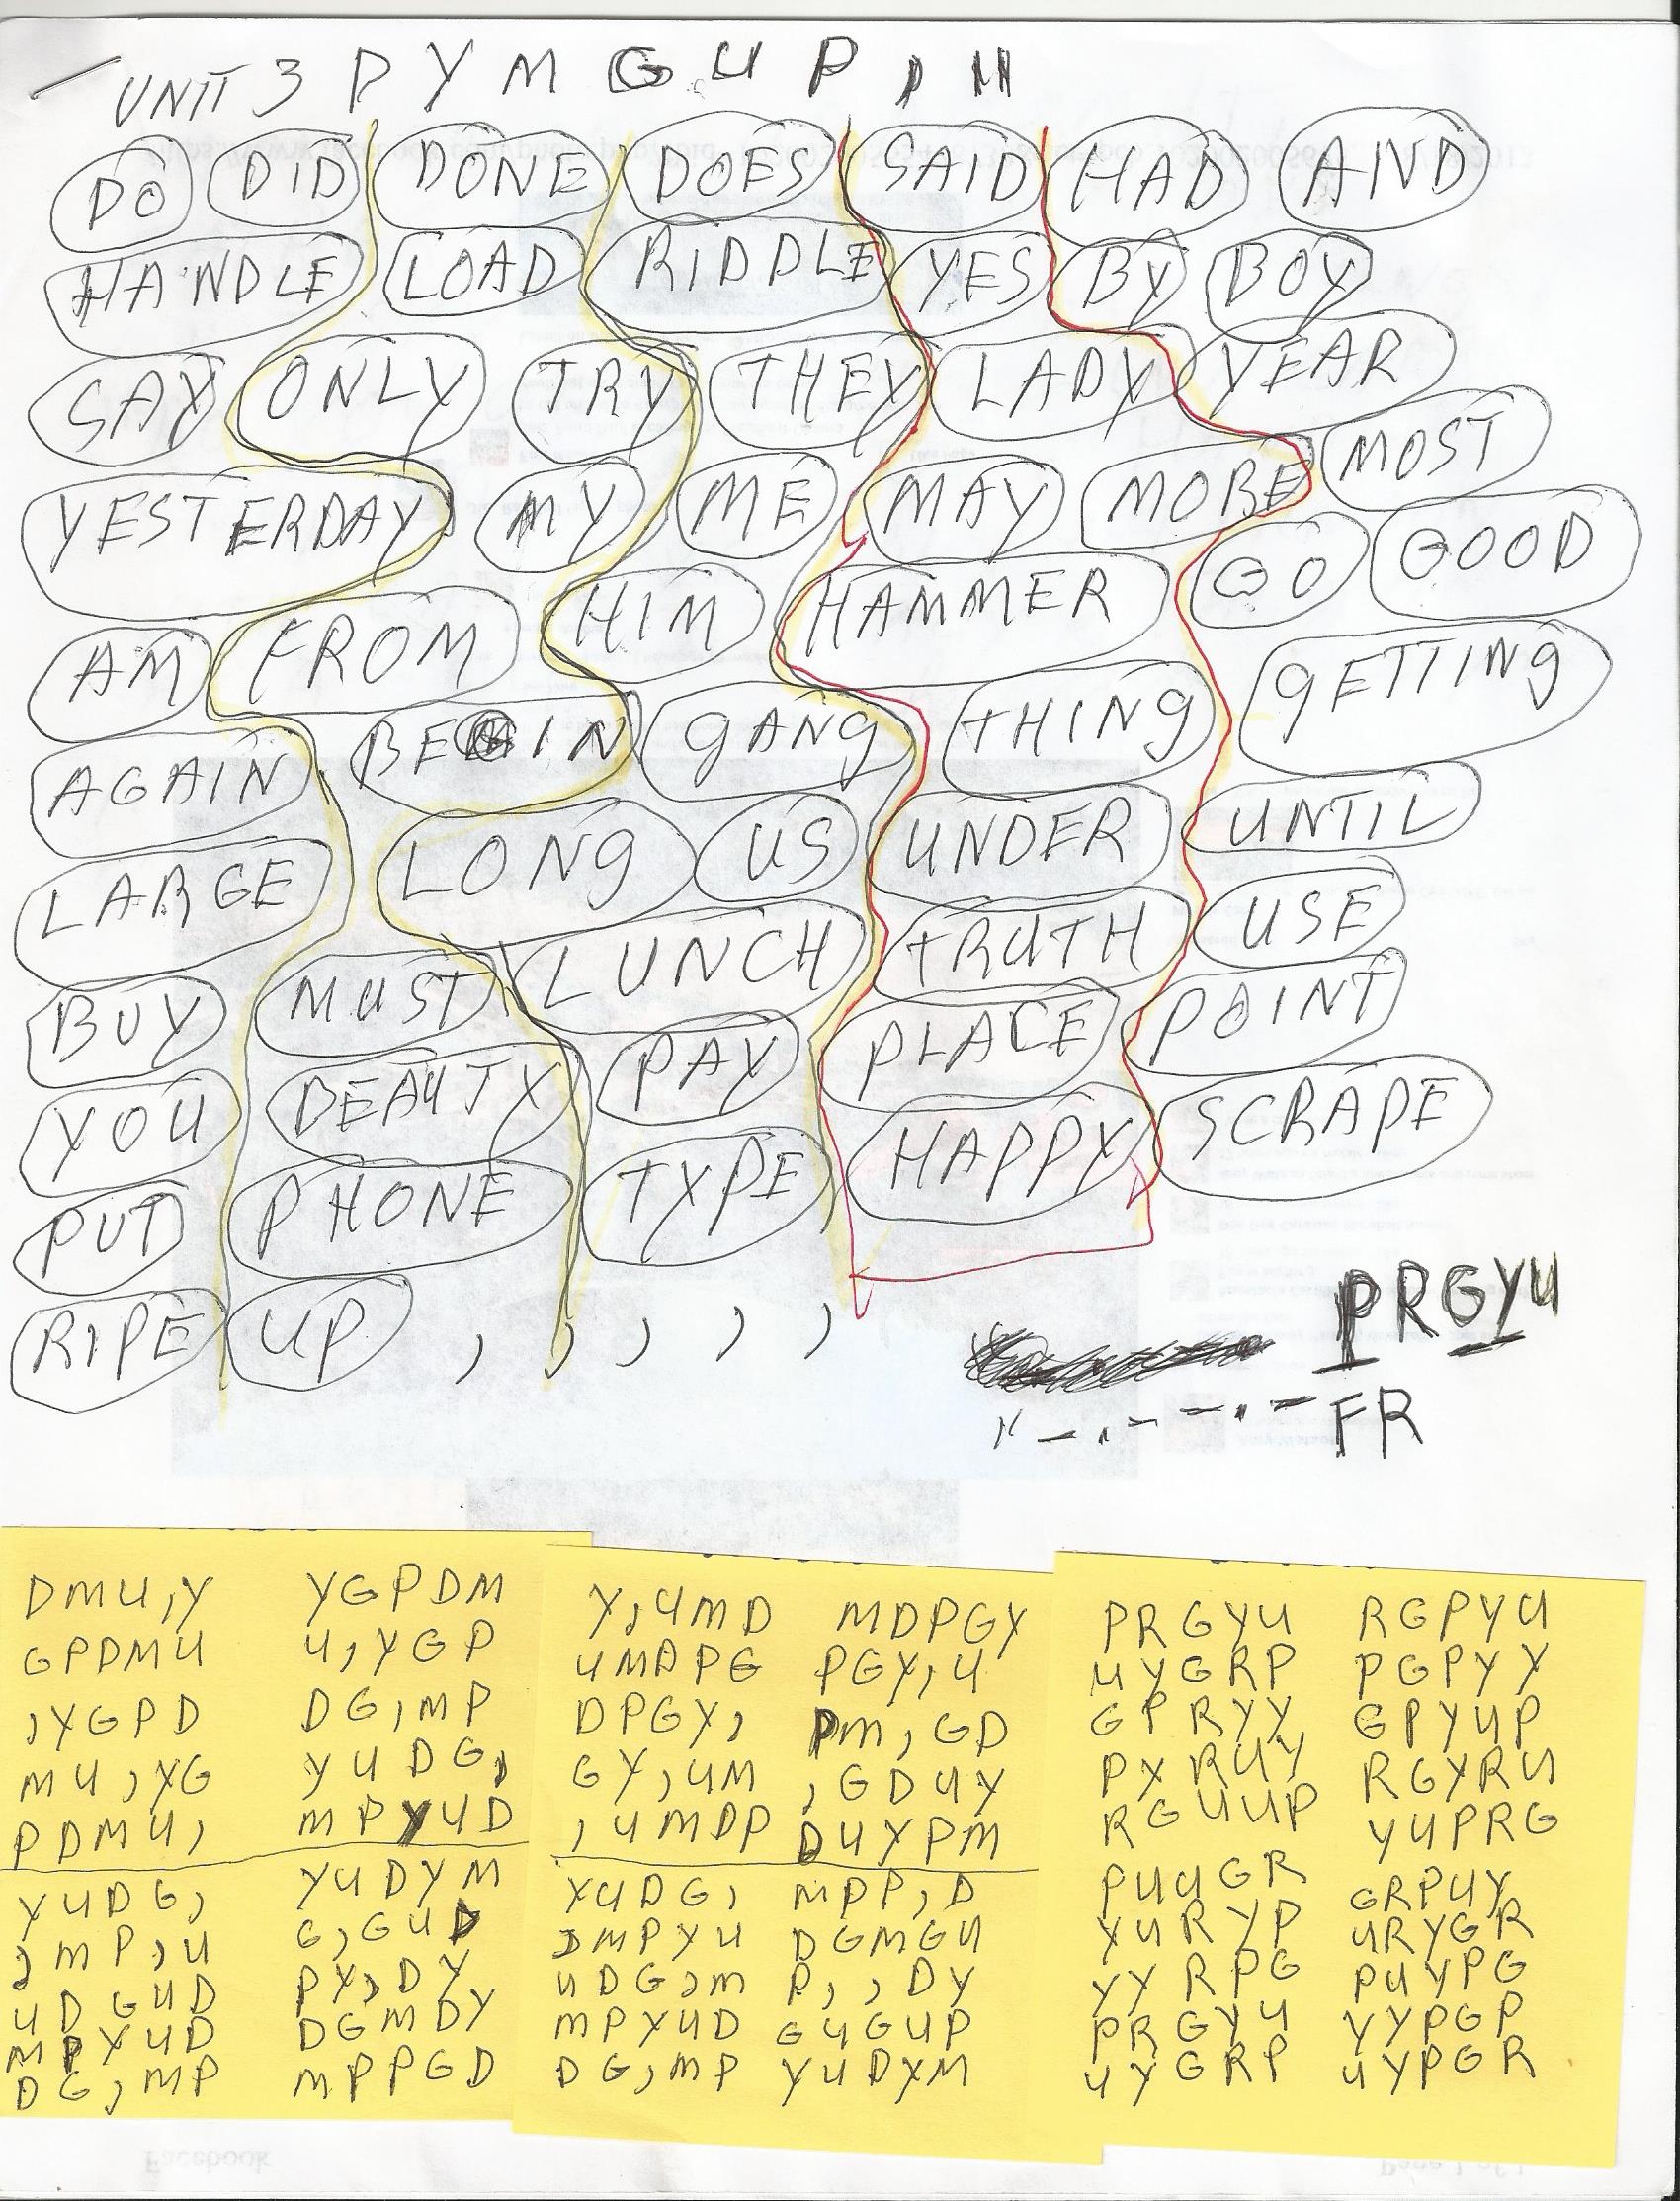 UNIT 3 D Y M G U P , "
DO DID DONE DOES SAID HAD AND
HANDLE LOAD RIDDLE YES BY BOY
SAY ONLY TRY THEY LADY YEAR
YESTERDAY MY ME MAY MORE MOST
AM FROM HIM HAMMER GO GOOD
AGAIN BEGIN GANG THING GETTING
LARGE LONG US UNDER UNTIL
BUY MUST LUNCH TRUTH USE
YOU BEAUTY PAY PLACE POINT
PUT PHONE TYPE HAPPY SCRAPE
RIPE UP , , , , ,
PRGYU
FR
DMU,Y YGPDM
GPDMU U,YGP
,YGPD DG,MP
MU,YG YUDG,
PDMU, MPYUD
YUDG, YUDYM
,MP,U G,GUD
UDGUD PY,DY
MPYUD DGMDY
DG,MP MPPGD
Y,UMD MDPGY
UMDPG PGY,U
DPGY, PM,GD
GY,UM ,GDUY
,UMDP DUYPM
YUDG, MPP,D
,MPYU DGMGU
UDG,M P,,DY
MPYUD GUGUP
DG,MP YUDYM
PRGYU RGPYU
UYGRP PGPYY
GPRYY GPYUP
PYRUY RGYRU
RGUUP YUPRG
PUUGR GRPUY
YURYP URYGR
YYRPG PUYPG
PRGYU YYPGP
UYGRP UYPGR
Facebook